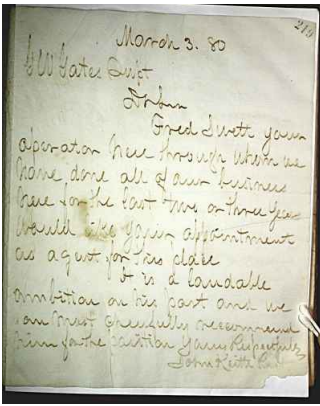 219
March 3. 80
G W Gates Supt
Dr Sir
Fred Swett your
operator here through whom we
have done all of our business
here for the last two or three years
would like your appointment
as agent for this place
It is a laudable
ambition on his part and we
can most cheerfully recommend
him for the position Yours Respectfully
John Keith